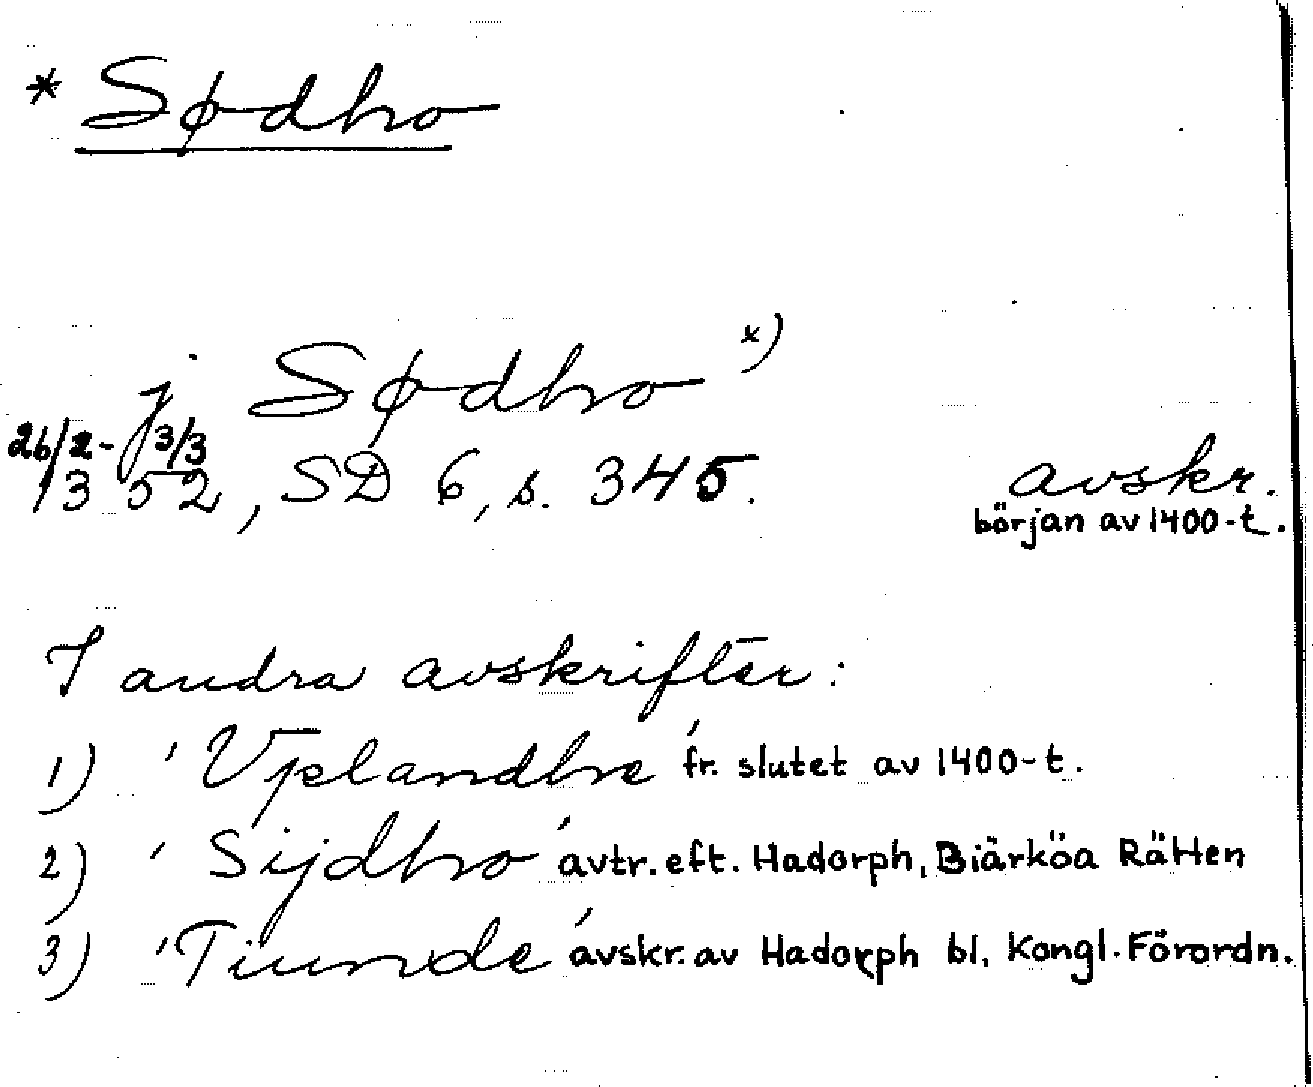 * Sødhro
j Sødhro x)
26/2 - 3/3
1352, SD 6, s. 345. avskr.
början av 1400-t.
I andra avskrifter:
1) 'Vplandhre' fr. slutet av 1400-t.
2) 'Sijdhro' avtr. eft. Hadorph, Biärköa Rätten
3) 'Tiunde' avskr. av Hadorph bl. Kongl. Förordn.